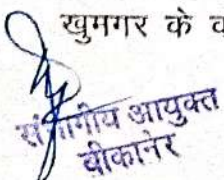 खुमगर के व
संभागीय आयुक्त
बीकानेर